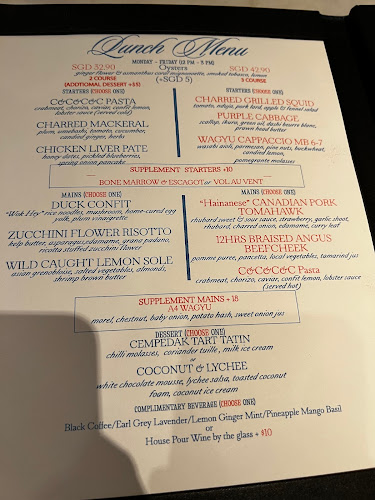 Lunch Menu
MONDAY - FRIDAY (12 PM - 3 PM)
SGD 32.90
2 COURSE
(ADDITIONAL DESSERT +$5)
Oysters
ginger flower & osmanthus cord mignonnette, smoked tobasco, lemon
(+SGD 5)
SGD 42.90
3 COURSE
STARTERS (CHOOSE ONE)
C&C&C&C PASTA
crabmeat, chorizo, caviar, confit lemon,
lobster sauce (served cold)
CHARRED MACKERAL
plum, umeboshi, tomato, cucumber,
candied ginger, herbs
CHICKEN LIVER PATE
honey dates, pickled blueberries,
spring onion pancake
STARTERS (CHOOSE ONE)
CHARRED GRILLED SQUID
tomato, nduja, pork lard, apple & fennel salad
PURPLE CABBAGE
scallop, ikura, green oil, dashi beurre blanc,
prawn head butter
WAGYU CAPPACCIO MB 6-7
wasabi aioli, parmesan, pine nuts, buckwheat,
candied lemon,
pomegranate molasses
SUPPLEMENT STARTERS +10
BONE MARROW & ESCAGOT or VOL AU VENT
MAINS (CHOOSE ONE)
DUCK CONFIT
"Wok Hey" rice noodles, mushroom, home-cured egg
yolk, plum vinaigrette
ZUCCHINI FLOWER RISOTTO
kelp butter, asparagus, edamame, grana padano,
ricotta stuffed zucchini flower
WILD CAUGHT LEMON SOLE
asian grenobloise, salted vegetables, almonds,
shrimp brown butter
MAINS (CHOOSE ONE)
"Hainanese" CANADIAN PORK
TOMAHAWK
rhubarb sweet & sour sauce, strawberry, garlic shoot,
rhubarb, charred onion, edamame, curry leaf
12HRS BRAISED ANGUS
BEEFCHEEK
pomme puree, pancetta, local vegetables, tamarind jus
C&C&C&C Pasta
crabmeat, chorizo, caviar, confit lemon, lobster sauce
(served hot)
SUPPLEMENT MAINS + 18
A4 WAGYU
morel, chestnut, baby onion, potato hash, sweet onion jus
DESSERT (CHOOSE ONE)
CEMPEDAK TART TATIN
chilli molasses, coriander tuille, milk ice cream
or
COCONUT & LYCHEE
white chocolate mousse, lychee salsa, toasted coconut
foam, coconut ice cream
COMPLIMENTARY BEVERAGE (CHOOSE ONE)
Black Coffee/Earl Grey Lavender/Lemon Ginger Mint/Pineapple Mango Basil
or
House Pour Wine by the glass + $10